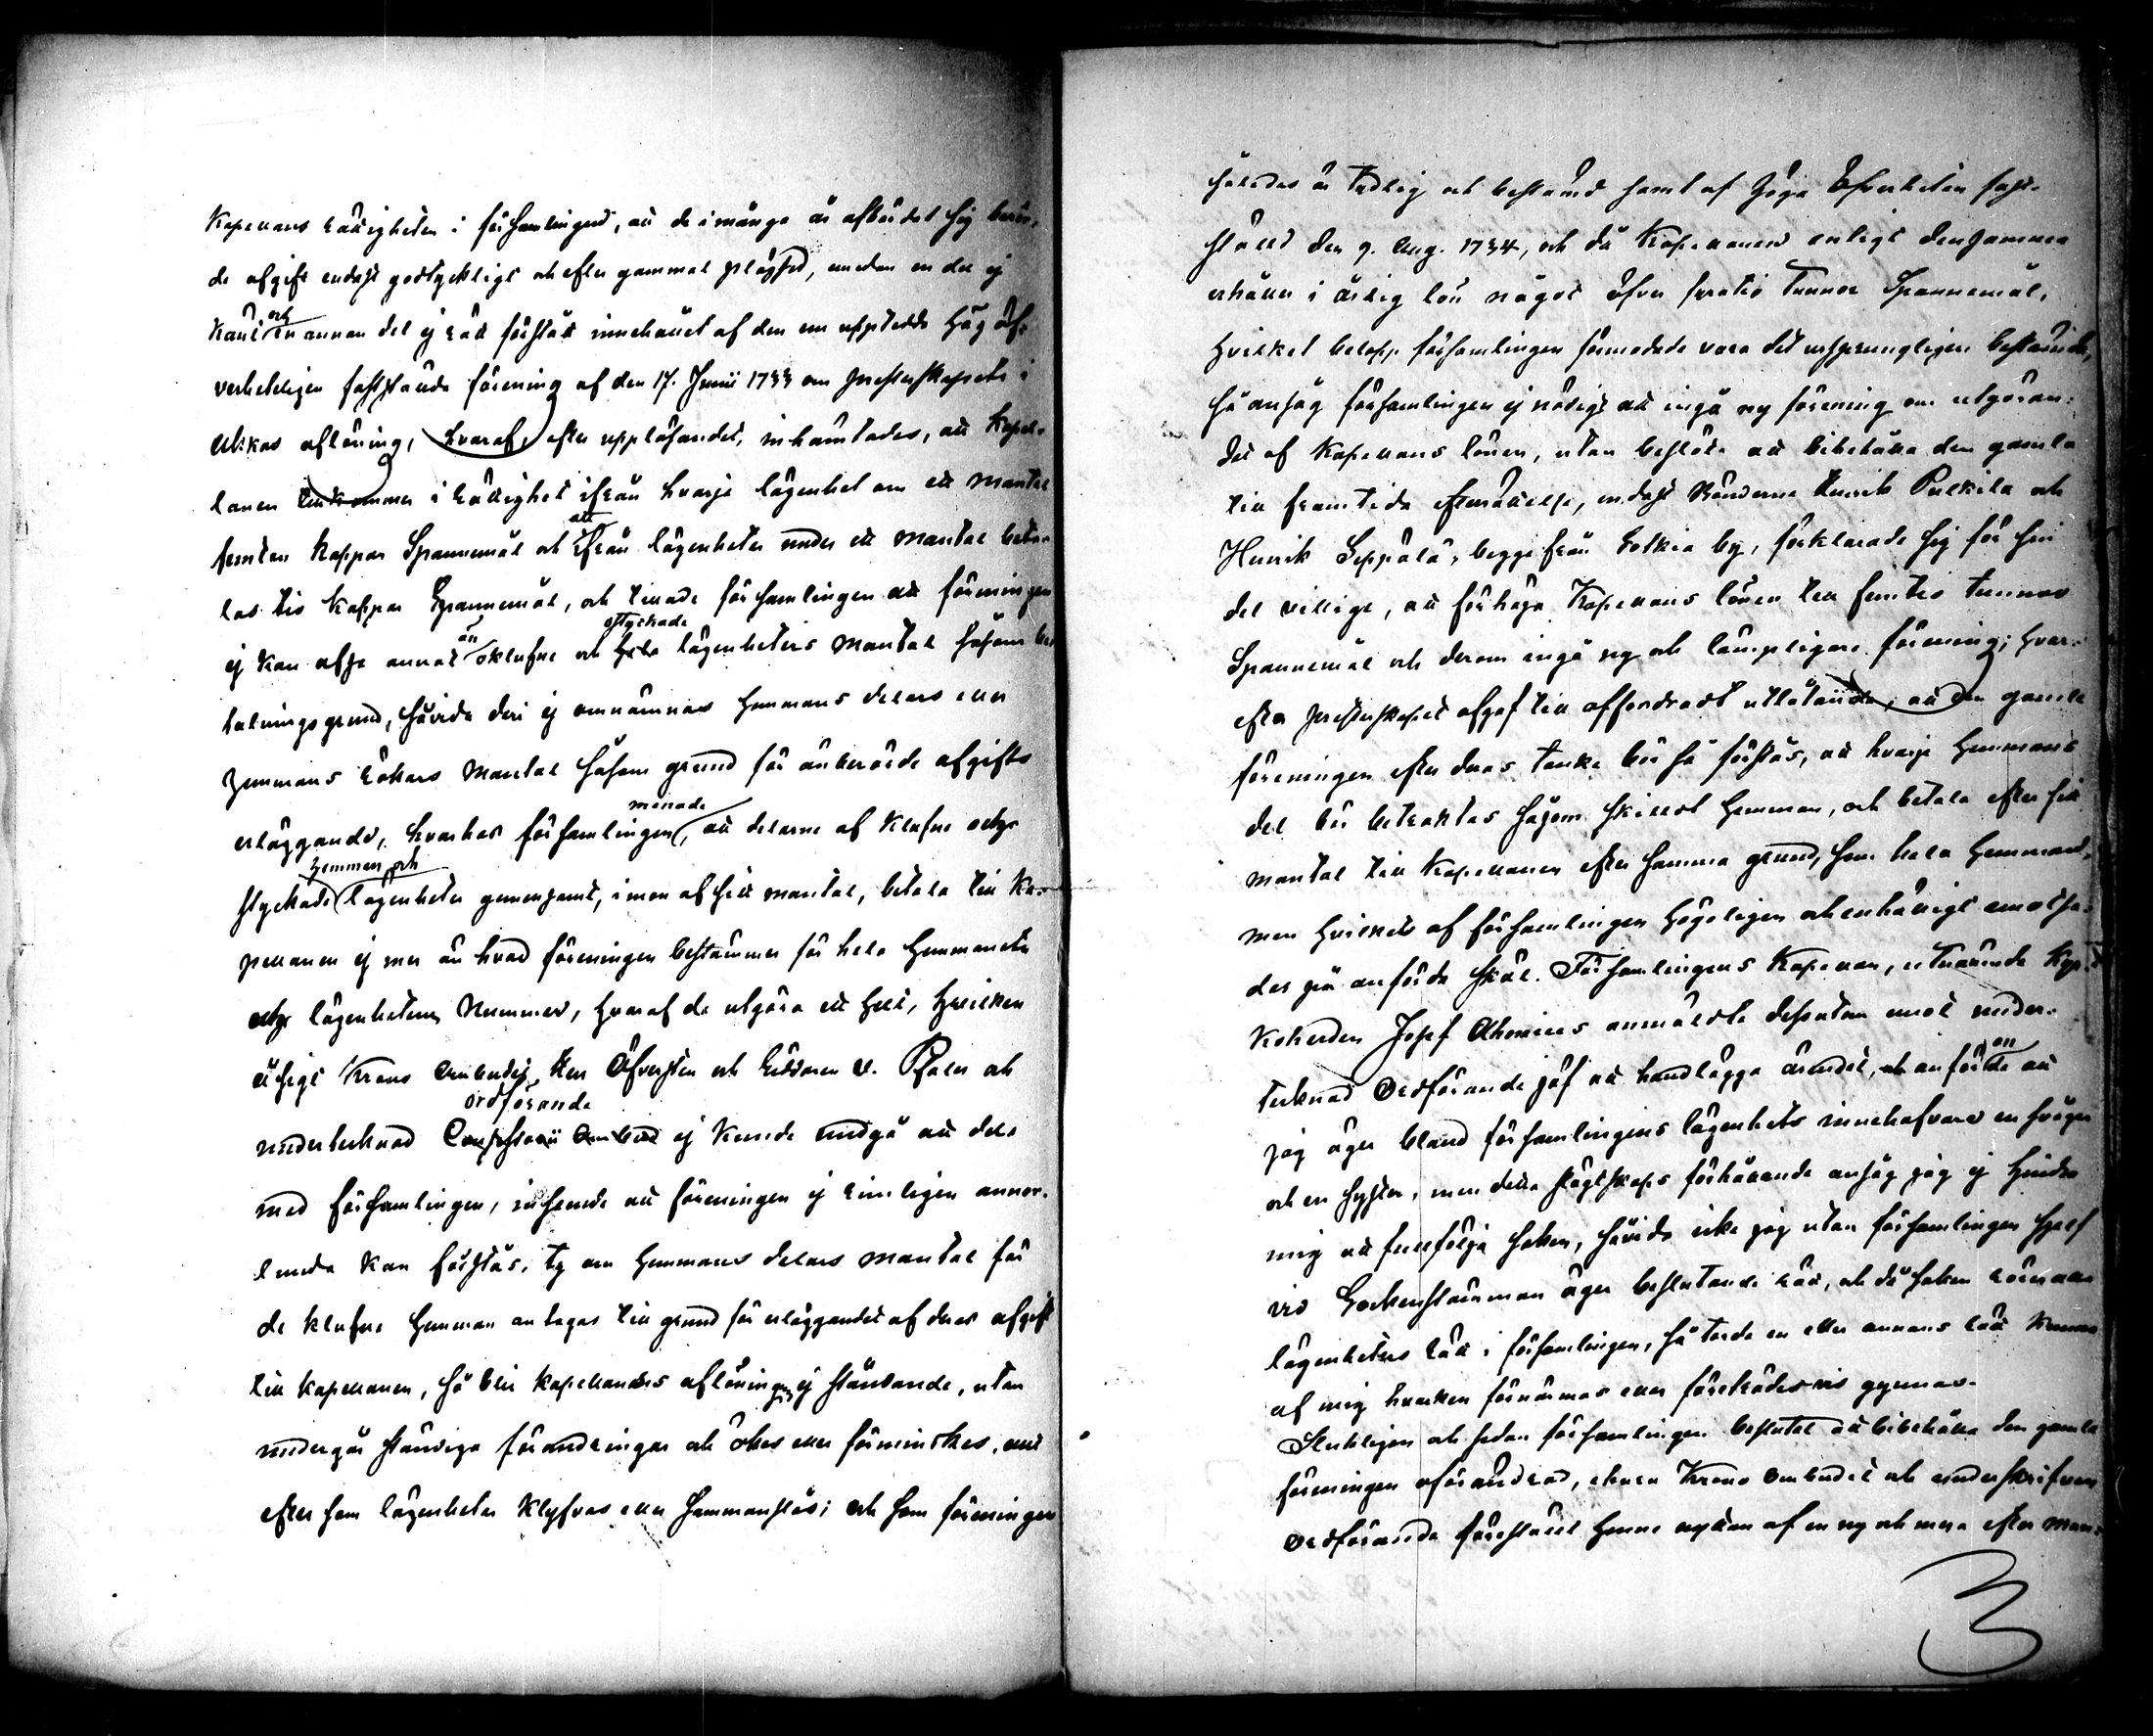 Kapellans rättigheten i församlingen, att de i många år afbördat sig berör-
de afgift endast godtyckligt och efter gammal plägsed, medan en del ej
känt och en annan del ej rätt förstått innehållet af den nu uppteedde Hög Öf-
verheteligen fastställda förening af den 17. Junii 1733 om Presterskapets i
Ulikas aflöning, hvaraf, efter uppläsandet, inhämtades, att Kapel-
lanen tillkommer i rättighet ifrån hvarje lägenhet om ett mantal
femton kappar Spannemål och att ifrån lägenheter under ett mantal beta-
las tio kappar Spannemål, och trodde församlingen att föreningen
ej kan afse annat än oklufne och ostyckade lägenheters mantal såsom be-
talningsgrund, såvida deri ej omnämnas Hemmans delars eller
Hemmans rökars Mantal såsom grund för änberörde afgifts
erläggande, hvarhos församlingen, menade att delarne af klufne och
styckade Hemman och lägenheter gemensamt, i mon af sitt mantal, betala till Ka-
pellanen ej mer än hvad föreningen bestämmer för hela Hemmanets
och lägenhetens Nummer, hvaraf de utgöra ett helt, hvilken
åsigt Krono Ombudet Herr Öfversten och Riddaren v. Pfaler och
undertecknad ordförande ej kunde undgå att dela
med församlingen, inseende att föreningen ej rimligen annor-
lunda kan förstås, ty om Hemmans delars mantal för
de klufne Hemman antages till grund för erläggandet af deras afgift
till kapellanen, så blir kapellanens aflöning ej ständande, utan
undergår ständiga förändringar och ökes eller förminskas, allt
efter som lägenheter klyfvas eller sammanslås; och som föreningen
således är tydlig och bestämd samt af Höga Öfverheten fast-
ställd den 9. Aug. 1734, och då Kapellanen enligt densamma
erhåller i årlig lön något öfver fyratio Tunnor Spannemål,
hvilket belopp församlingen förmodade vara det ursprungligen bestämda,
så ansåg församlingen ej nödigt att ingå ny förening om utgöran-
det af Kapellans lönen, utan beslöto att bibehålla den gamla
till framtida efterrättelse, endast Bönderne Henrik Pulkila och
Henrik Seppälä, begge från Sotkia by, förklarade sig för sin
del villige, att förhöja Kapellans lönen till femtio tunnor
Spannemål och derom ingå ny och lämpligare förening; hvar-
efter Presterskapet afgaf till affordradt utlåtande, att den gamla
föreningen efter deras tanke bör så förstås, att hvarje Hemmans
del bör betraktas såsom skilldt Hemman, och betala efter sitt
mantal till Kapellanen efter samma grund, som hela Hemmanet,
men hvilket af församlingen högeligen och enhälligt emotsa-
des på anförde skäl. Församlingens Kapellan, utnämnde Kyr-
koherden Josef Ahonius anmälde dessutom emot under-
tecknad Ordförande jäf att handlägga ärendet, och anförde on att
jag äger bland församlingens lägenhets innehafvare en svåger
och en syster, men detta slägtskaps förhållande ansåg jag ej hindra
mig att fullfölja saken, såvida icke jag utan församlingen sjelf
vid Sockenstämman äger beslutande rätt, och då saken rörer alla
lägenheters rätt i församlingen, så torde en eller annans rätt kunna
af mig hvarken förnärmas eller företrädesvis gynnas.
Slutligen och sedan församlingen beslutat att bibehålla den gamla
föreningen oförändrad, ehuru Krono Ombudet och underskrifven
Ordförande föreställt henne nyttan af en ny och mera efter Man-
3